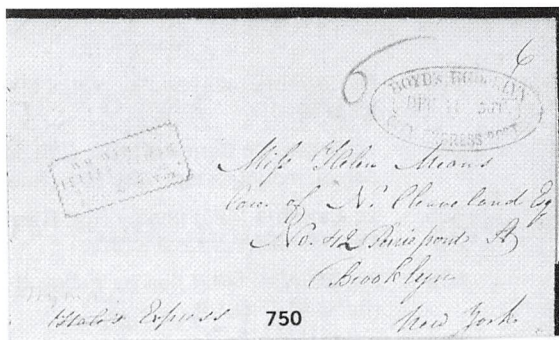 6
6
BOYD'S BROOKLYN
DEC
CITY EXPRESS POST
Miss Helen Means
Care of N. Cleaveland Esq
No. 42 Pierrepont St
Brooklyn
New York
Hale's Express
750